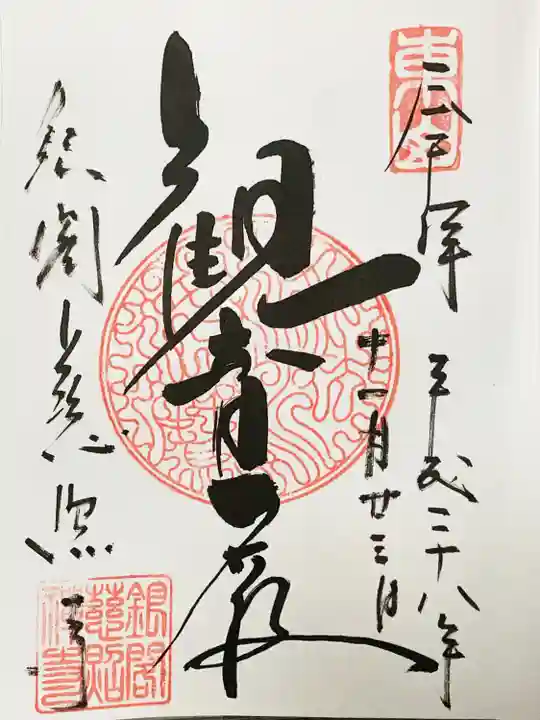 奉拝
平成二十八年
十一月廿三日
観音殿
銀閣慈照寺
銀閣
慈照
禅寺